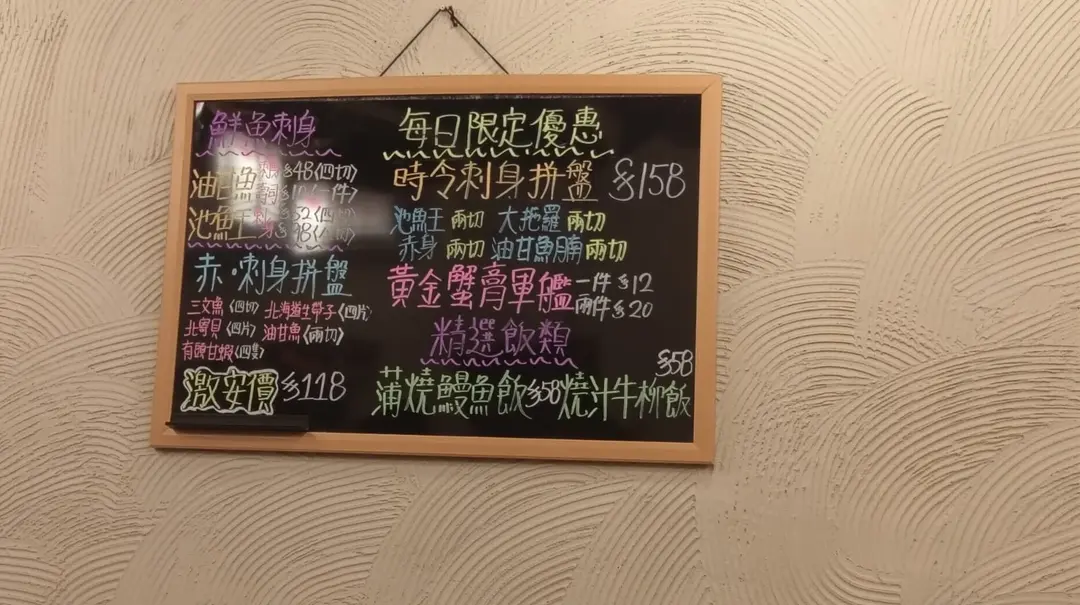 鮮魚刺身
油甘魚 刺身 $48〈四切〉
壽司 $18〈一件〉
池魚王 刺身 $52〈四切〉
$98〈八切〉
赤·刺身拼盤
三文魚〈四切〉 北海道生帶子〈四片〉
北寄貝〈四片〉 油甘魚〈兩切〉
有頭甘蝦〈四隻〉
激安價 $118
每日限定優惠
時令刺身拼盤 $158
池魚王 兩切 大拖羅 兩切
赤身 兩切 油甘魚腩 兩切
黃金蟹膏軍艦 一件 $12
兩件 $20
精選飯類
蒲燒鰻魚飯 $58 燒汁牛柳飯 $58